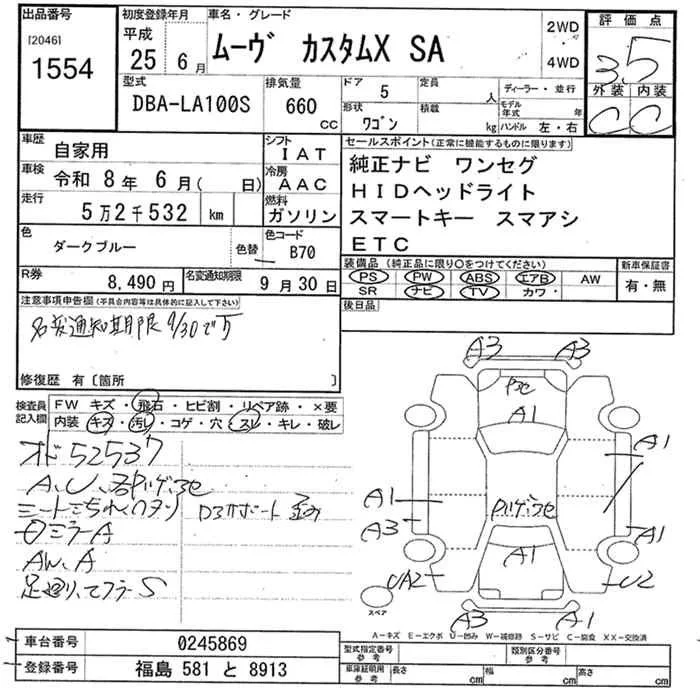 出品番号 初度登録年月 車名・グレード 評価点
[2046] 平成 2WD
1554 25年 6月 ムーヴ カスタムX SA 4WD 3.5
型式 排気量 ドア 5 定員 人 ディーラー・並行 外装 内装
DBA-LA100S 660 CC 形状 ワゴン 積載 kg モデル年式 年 ハンドル 左・右 C C
車歴 自家用 シフト IAT セールスポイント(正常に機能するものに限ります)
車検 令和 8年 6月( 日) 冷房 AAC 純正ナビ ワンセグ
走行 5万2千532 km 燃料 ガソリン HIDヘッドライト
スマートキー スマアシ
色 ダークブルー 色替 色コード B70 ETC
R券 8,490円 名変通知期限 9月30日 装備品(純正品に限り〇をつけてください) 新車保証書
PS PW ABS エアB AW 有・無
SR ナビ TV カワ
注意事項申告欄(不具合内容等は具体的に記入して下さい) 後日品
名変通知期限 9/30です
修復歴 有〔箇所 〕
検査員記入欄 FW キズ・飛石・ヒビ割・リペア跡・×要
内装 キズ・汚レ・コゲ・穴・スレ・キレ・破レ
オド52537
A、U、
ミラーA
AW、A
S
A3 A3
A1
A1
A1
A3
A1
A1
UA2 U2
スペア
A3 A1
A-キズ E-エクボ U-凹み W-補修跡 S-サビ C-腐食 XX-交換済
車台番号 0245869 型式指定番号 参考 類別区分番号 参考
登録番号 福島 581 と 8913 車庫証明用 参考 長さ cm 幅 cm 高さ cm